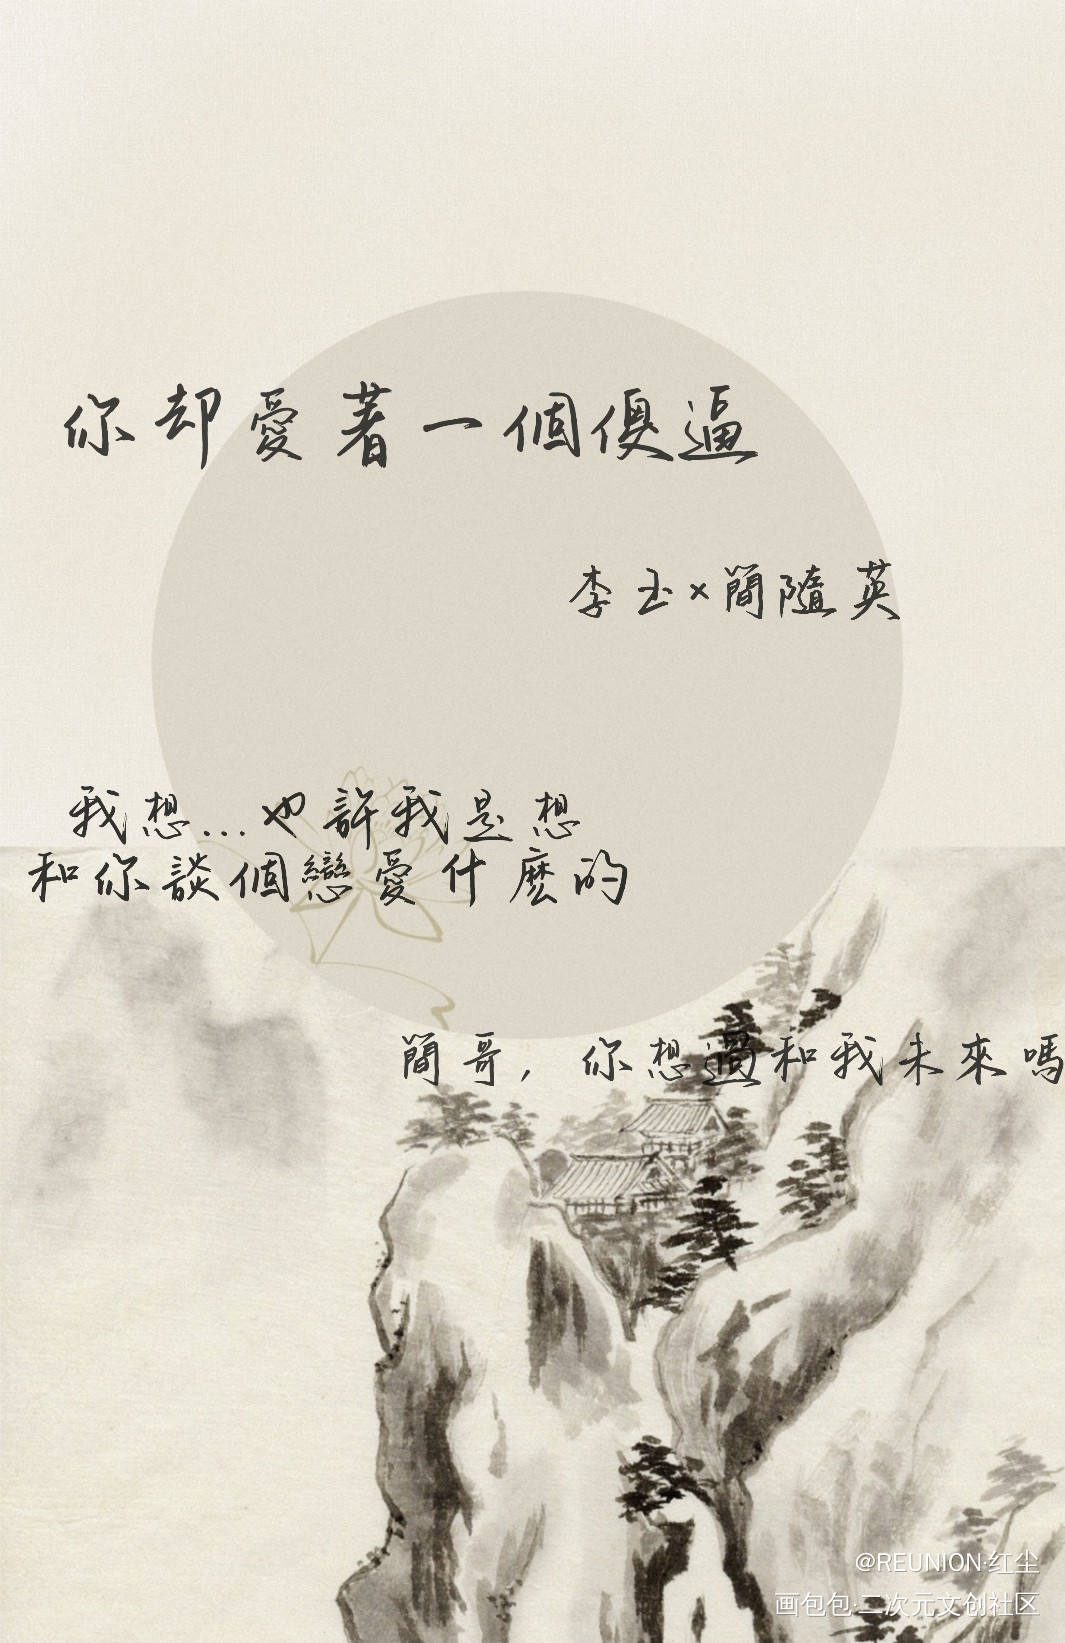 你却愛著一個傻逼
李玉×簡隨英
我想...也許我是想
和你談個戀愛什麼的
簡哥，你想過和我未來嗎
@REUNION·红尘
画包包·二次元文创社区